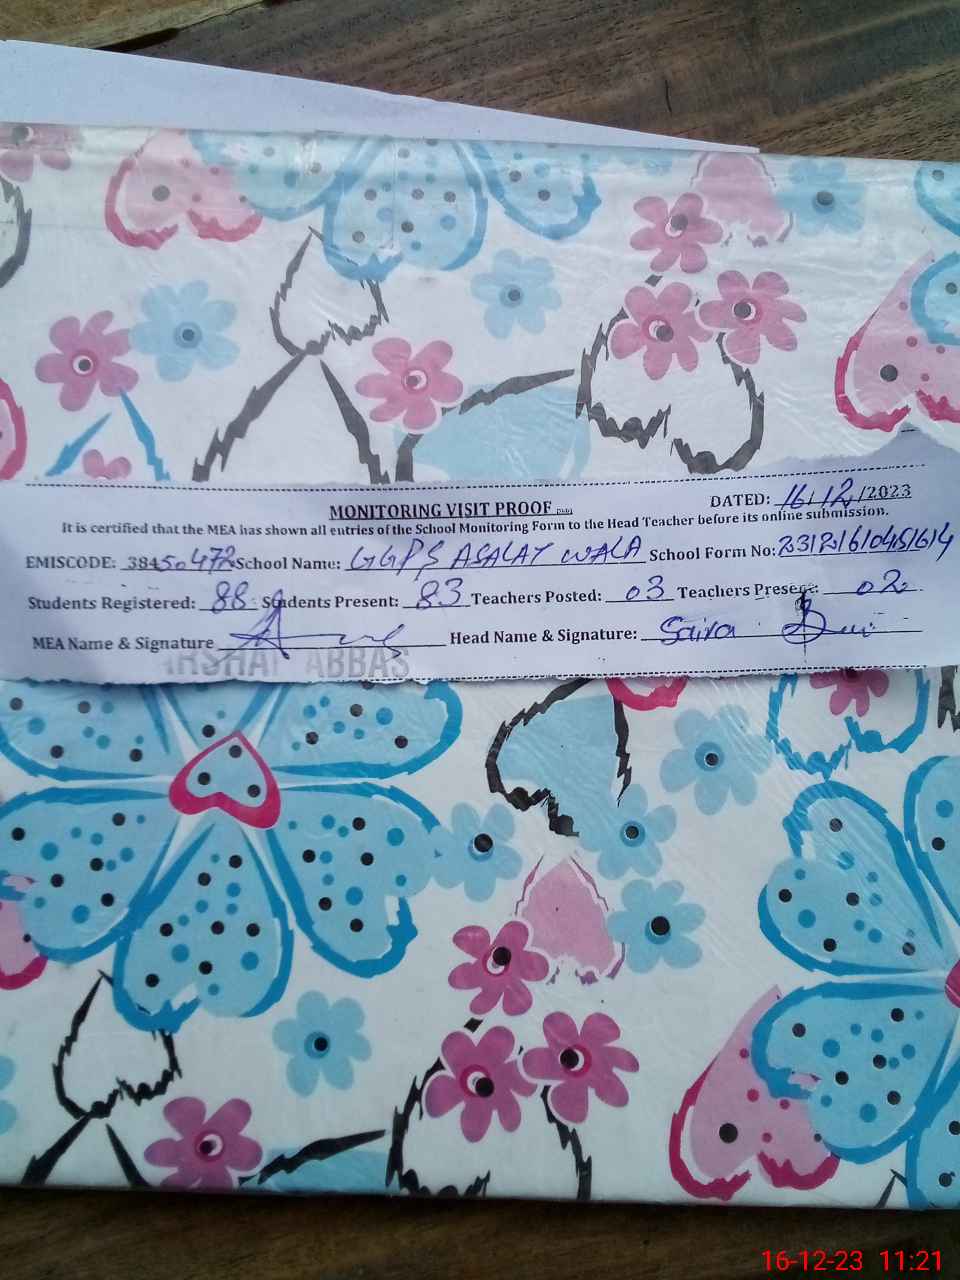 MONITORING VISIT PROOF
DATED: 16/12/2023
It is certified that the MEA has shown all entries of the School Monitoring Form to the Head Teacher before its online submission.
EMISCODE: 38450472 School Name: GGPS ASALAT WALA School Form No: 23121610451614
Students Registered: 88 Students Present: 83 Teachers Posted: 03 Teachers Present: 02
MEA Name & Signature Head Name & Signature: Saira
ARSHAD ABBAS
16-12-23 11:21